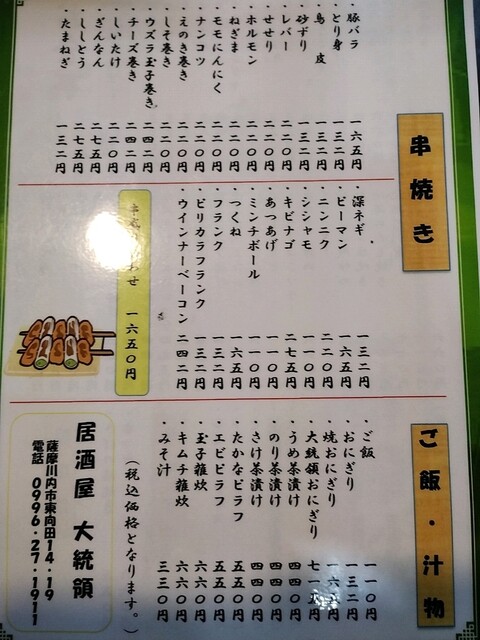 串焼き
・豚バラ 一六五円
・とり身 一三二円
・鳥皮 一三二円
・砂ずり 一三二円
・レバー 二二〇円
・せせり 二二〇円
・ホルモン 二二〇円
・ねぎま 二二〇円
・モモにんにく 二二〇円
・ナンコツ 二二〇円
・えのき巻き 二二〇円
・しそ巻き 二二〇円
・ウズラ玉子巻き 二四二円
・チーズ巻き 二四二円
・しいたけ 二二〇円
・ぎんなん 二七五円
・ししとう 二七五円
・たまねぎ 一三二円
・深ネギ 一三二円
・ピーマン 一六五円
・ニンニク 二二〇円
・シシャモ 一一〇円
・キビナゴ 二七五円
・あつあげ 一一〇円
・ミンチボール 一一〇円
・つくね 一六五円
・フランク 一三二円
・ピリカラフランク 一三二円
・ウインナーベーコン 二四二円
一六五〇円
ご飯・汁物
・ご飯 一一〇円
・おにぎり 一三二円
・焼おにぎり
・大統領おにぎり
・うめ茶漬け 四四〇円
・のり茶漬け 四四〇円
・さけ茶漬け 四四〇円
・たかなピラフ 五五〇円
・エビピラフ 五五〇円
・玉子雑炊 六六〇円
・キムチ雑炊 六六〇円
・みそ汁 三三〇円
(税込価格となります。)
居酒屋 大統領
薩摩川内市東向田14・19
電話 0996・27・1911